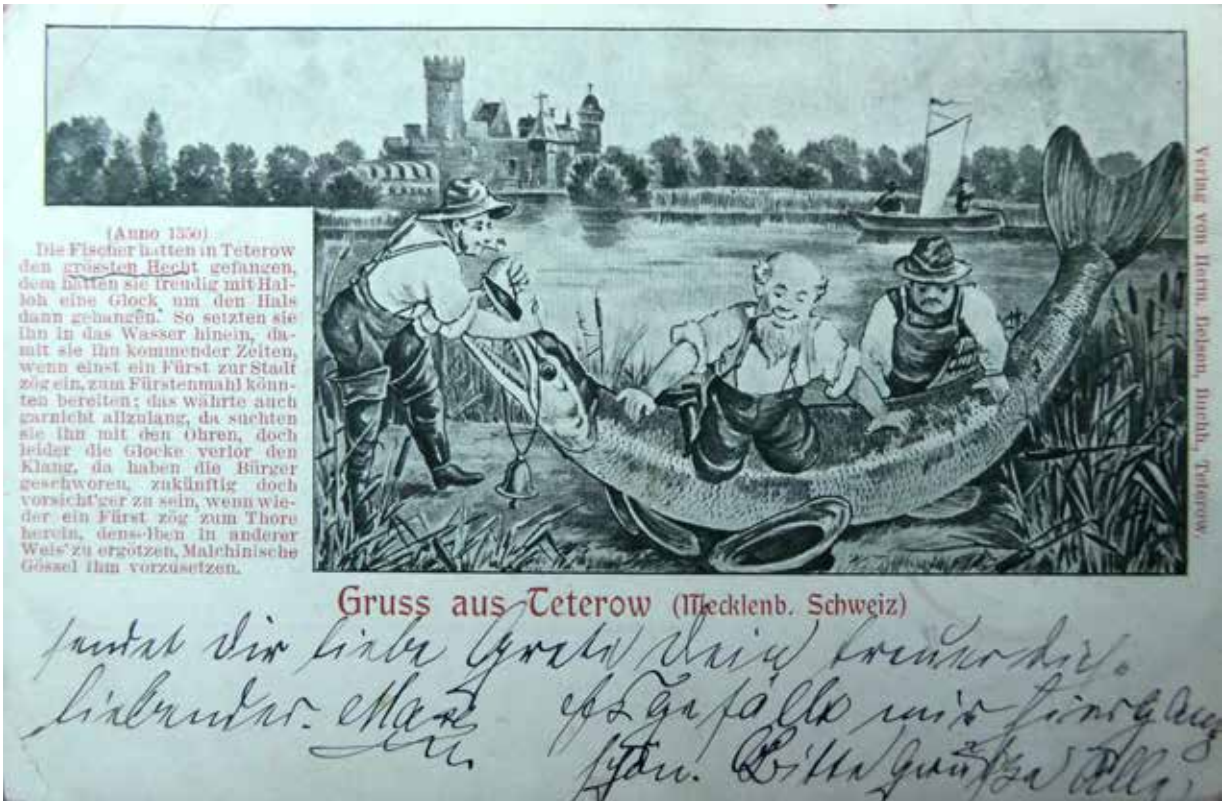 (Anno 1350)
Die Fischer hatten in Teterow
den grössten Hecht gefangen,
dem hätten sie freudig mit Hal-
loh eine Glock um den Hals
dann gehangen. So setzten sie
ihn in das Wasser hinein, da-
mit sie ihn kommender Zeiten,
wenn einst ein Fürst zur Stadt
zög ein, zum Fürstenmahl könn-
ten bereiten; das währte auch
garnicht allzulang, da suchten
sie ihn mit den Ohren, doch
leider die Glocke verlor den
Klang, da haben die Bürger
geschworen, zukünftig doch
vorsicht'ger zu sein, wenn wie-
der ein Fürst zög zum Thore
herein, denselben in anderer
Weis' zu ergötzen, Malchinische
Gössel ihm vorzusetzen.
Verlag von Herm. Belsen, Buchh., Teterow.
Gruss aus Teterow (Mecklenb. Schweiz)
sendet Dir liebe Grete Dein treuer Dich
liebender Max
Es gefällt mir hier ganz
schön. Bitte Grüsse Alle